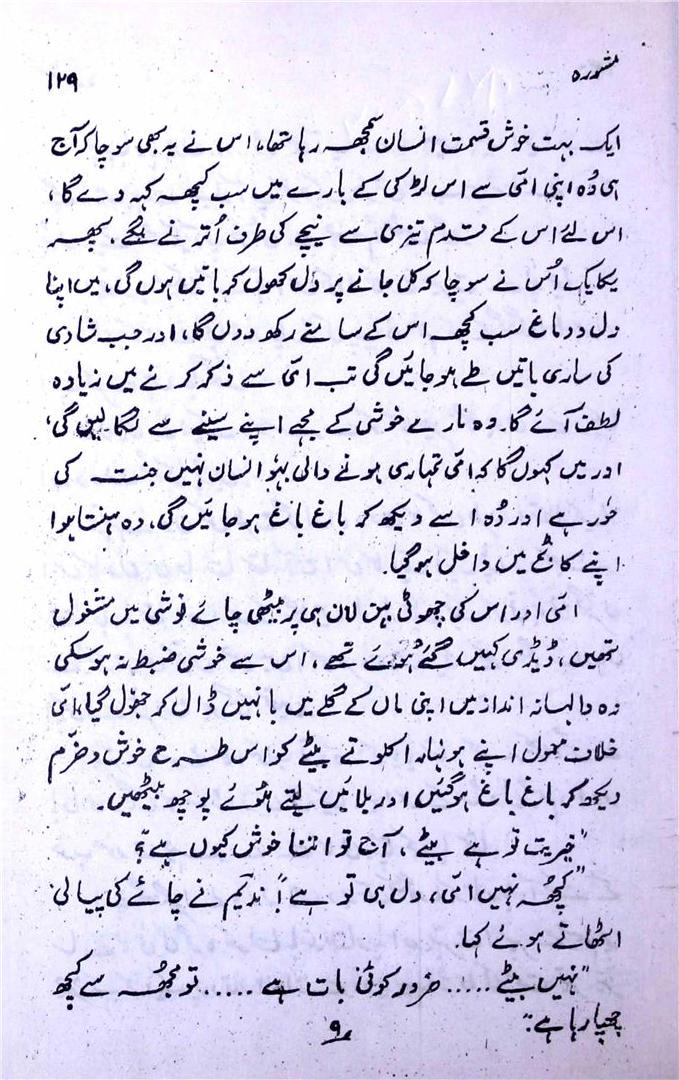 مشورہ
۱۲۹
ایک بہت خوش قسمت انسان سمجھ رہا تھا، اس نے یہ بھی سوچا کہ آج
ہی وُہ اپنی امّی سے اس لڑکی کے بارے میں سب کچھ کہہ دے گا،
اس لئے اس کے قدم تیزی سے نیچے کی طرف اُترنے لگے، پھر
یکایک اُس نے سوچا کہ کل جانے پر دل کھول کر باتیں ہوں گی، میں اپنا
دل و دماغ سب کچھ اس کے سامنے رکھ دوں گا، اور جب شادی
کی ساری باتیں طے ہو جائیں گی تب امّی سے ذکر کرنے میں زیادہ
لطف آئے گا۔ وہ مارے خوشی کے مجھے اپنے سینے سے لگا لیں گی،
اور میں کہوں گا کہ امّی تمہاری ہونے والی بہو انسان نہیں جنت کی
حُور ہے اور وُہ اسے دیکھ کر باغ باغ ہو جائیں گی، وہ ہنستا ہوا
اپنے کاٹج میں داخل ہو گیا۔
امّی اور اس کی چھوٹی بہن لان ہی پر بیٹھی چائے نوشی میں مشغول
تھیں، ڈیڈی کہیں گئے ہُوئے تھے، اس سے خوشی ضبط نہ ہو سکی
وہ والہانہ انداز میں اپنی ماں کے گلے میں بانہیں ڈال کر جھول گیا، امّی
خلاف معمول اپنے ہونہار اکلوتے بیٹے کو اس طرح خوش و خرّم
دیکھ کر باغ باغ ہو گئیں اور بلائیں لیتے ہُوئے پوچھ بیٹھیں۔
"خیریت تو ہے بیٹے، آج تو اتنا خوش کیوں ہے؟"
"کچھ نہیں امّی، دل ہی تو ہے!" ندیم نے چائے کی پیالی
اٹھاتے ہوئے کہا۔
"نہیں بیٹے ..... ضرور کوئی بات ہے ...... تو مجھ سے کچھ
چھپا رہا ہے۔"
۹